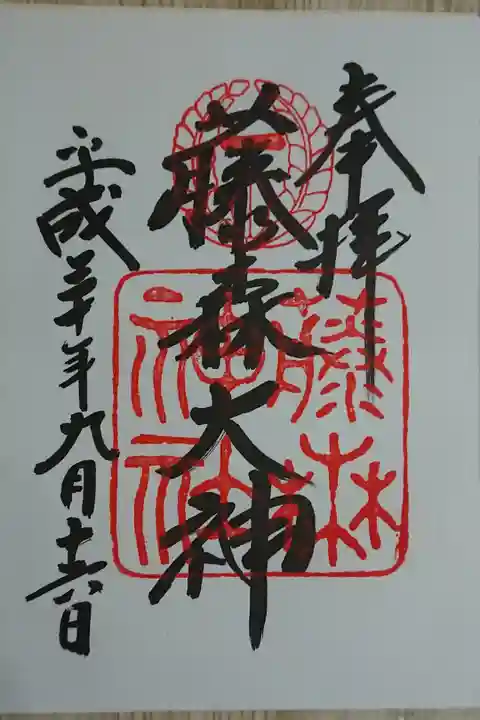 奉拝
藤森大神
平成三十年九月十六日
藤森神社